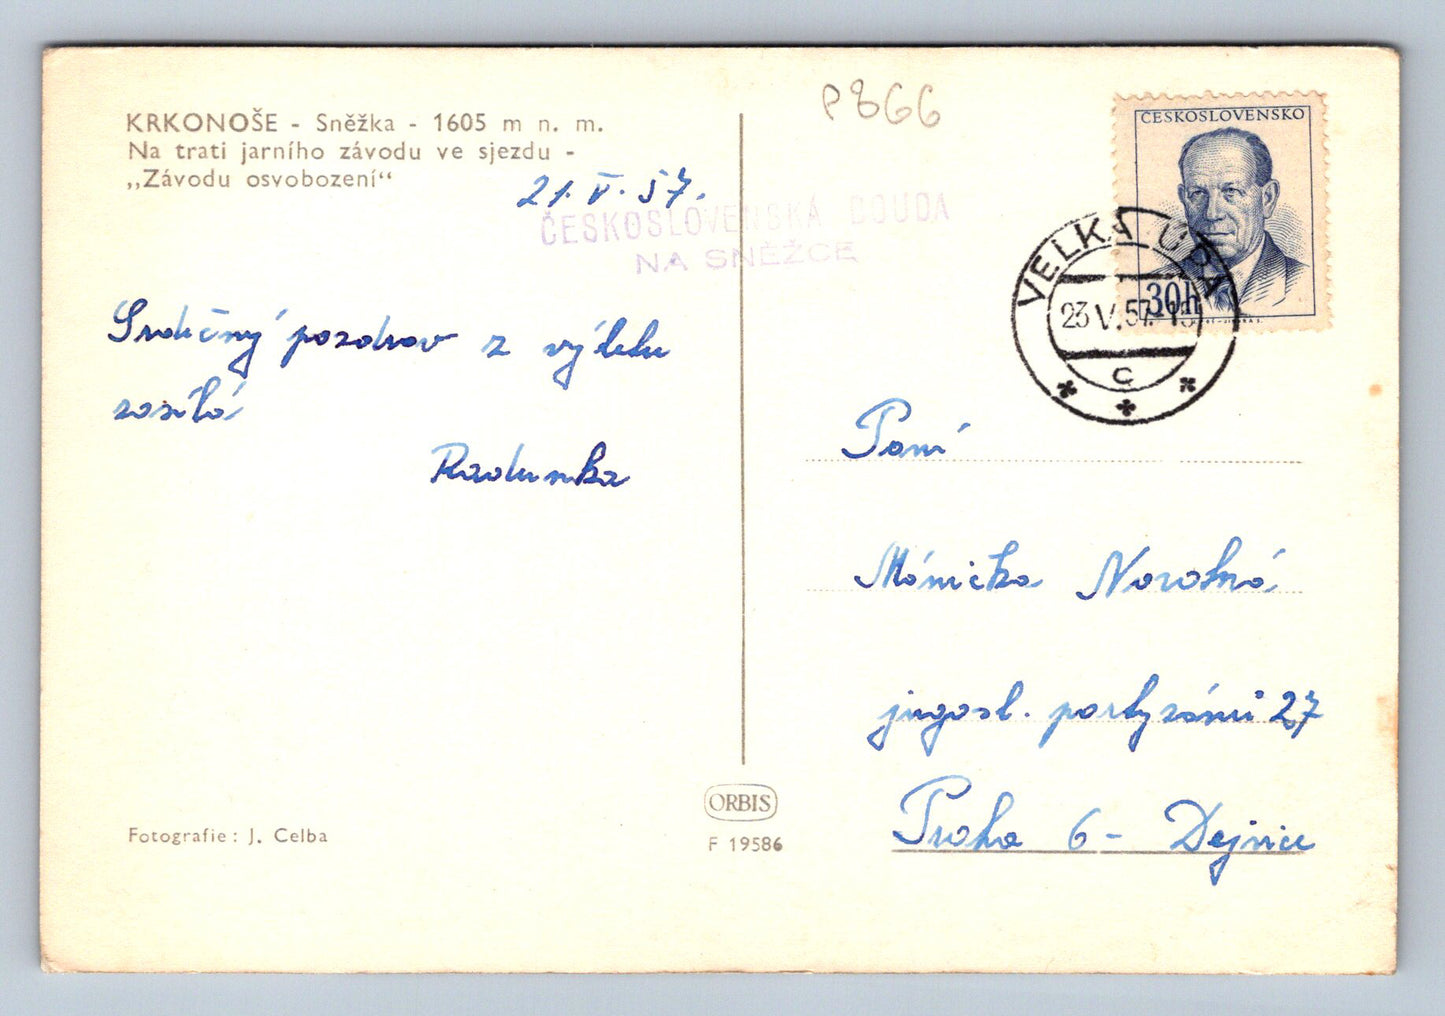 KRKONOŠE - Sněžka - 1605 m n. m.
Na trati jarního závodu ve sjezdu -
„Závodu osvobození“
21. V. 57.
ČESKOSLOVENSKÁ BOUDA
NA SNĚŽCE
Srdečný pozdrav z výletu
zasílá
Radunka
Fotografie: J. Celba
ORBIS
F 19586
P866
ČESKOSLOVENSKO
30h
VELKÁ ÚPA
23.V.57.-13
C
Paní
Mánička
jugosl. partyzánů 27
Praha 6 - Dejvice